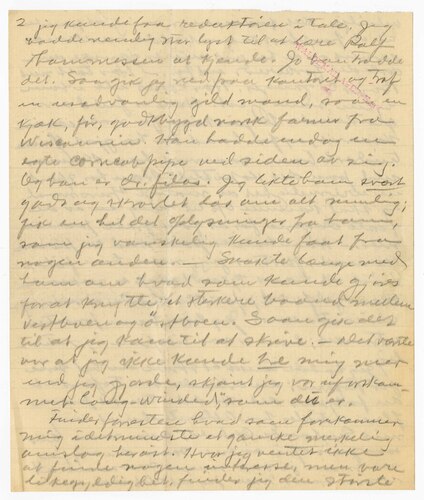 2 jeg kunde faa redaktøren i tale. Jeg
hadde nemlig stor lyst til at lære Ralf
Hammessen at kjende. Jo han trodde
det. Saa gik jeg ned paa kontoret og traf
en usedvanlig gild mand, som en
kjæk, før, godt bygd norsk farmer fra
Wisconsin. Han hadde endog en
egte Corncob pipe ved siden at sig.
Og han er dr. filos. Jeg likte ham svært
godt og skrøtet hos om alt mulig;
fik en hel del oplysninger fra ham,
som jeg vanskelig kunde faat fra
nogen anden. — Snakte længe med
ham om hvad som kunde gjøres
for at knytte et sterkere baand mellem
vestboen og østboen. Saa gik det
til at jeg kom til at skrive. — Det værste
var at jeg ikke kunde be mig mer
end jeg gjorde, skjønt jeg var uforskam-
met "Long-Winded", som du er.
Finder forresten hvad som forekommer
mig i det mindste et ganske merkelig
omslag herøst. Hvor jeg ventet ikke
at finde nogen interesse, men bare
likegyldighet, finder jeg den største